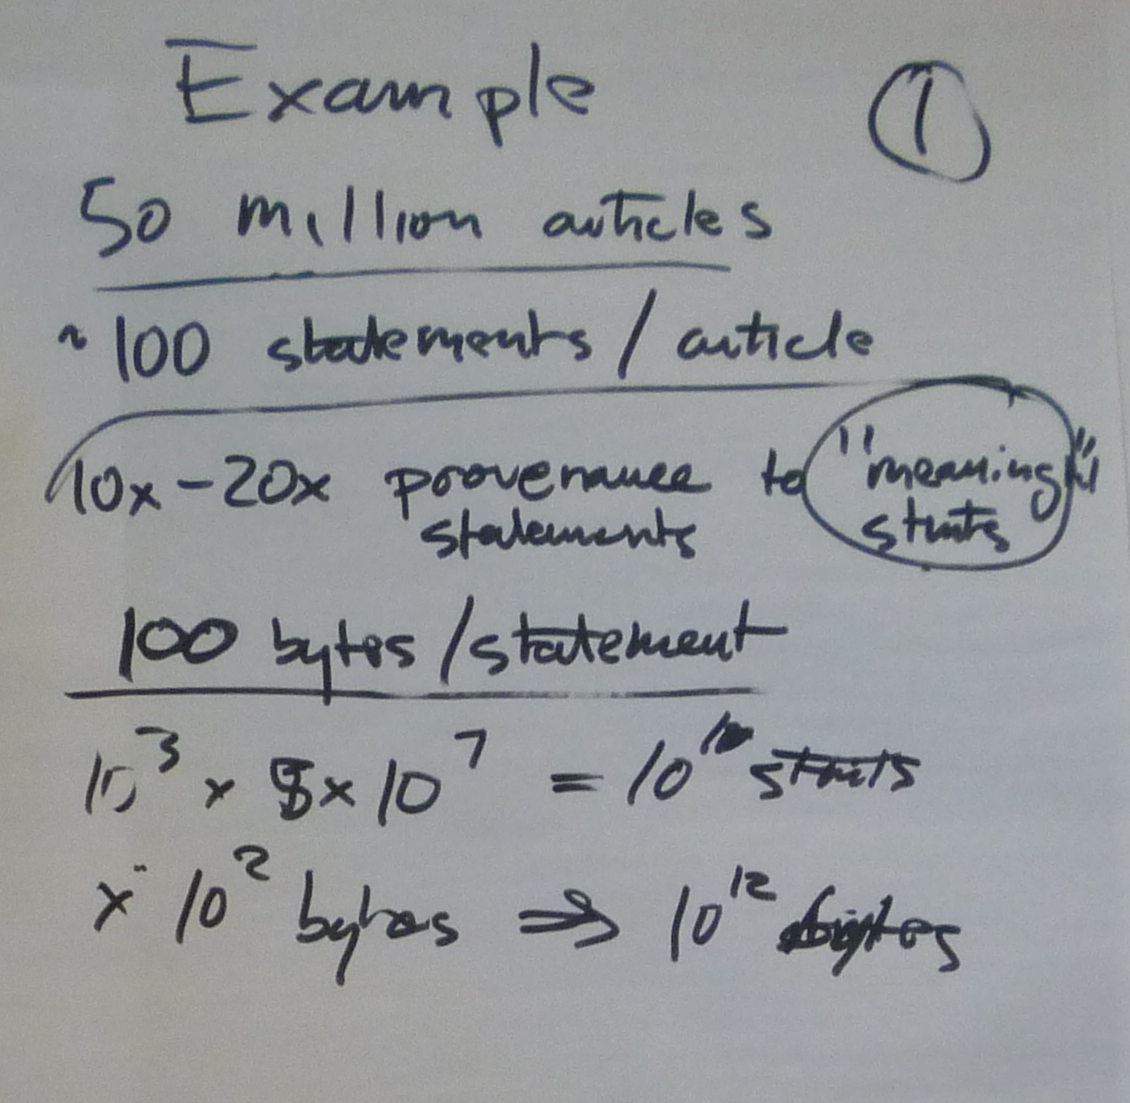 Example
1
50 million articles
~ 100 statements / article
10x - 20x provenance to "meaning"
statements stmts
100 bytes / statement
10³ x 5 x 10⁷ = 10¹⁰ stmts
x 10² bytes ⇒ 10¹² bytes